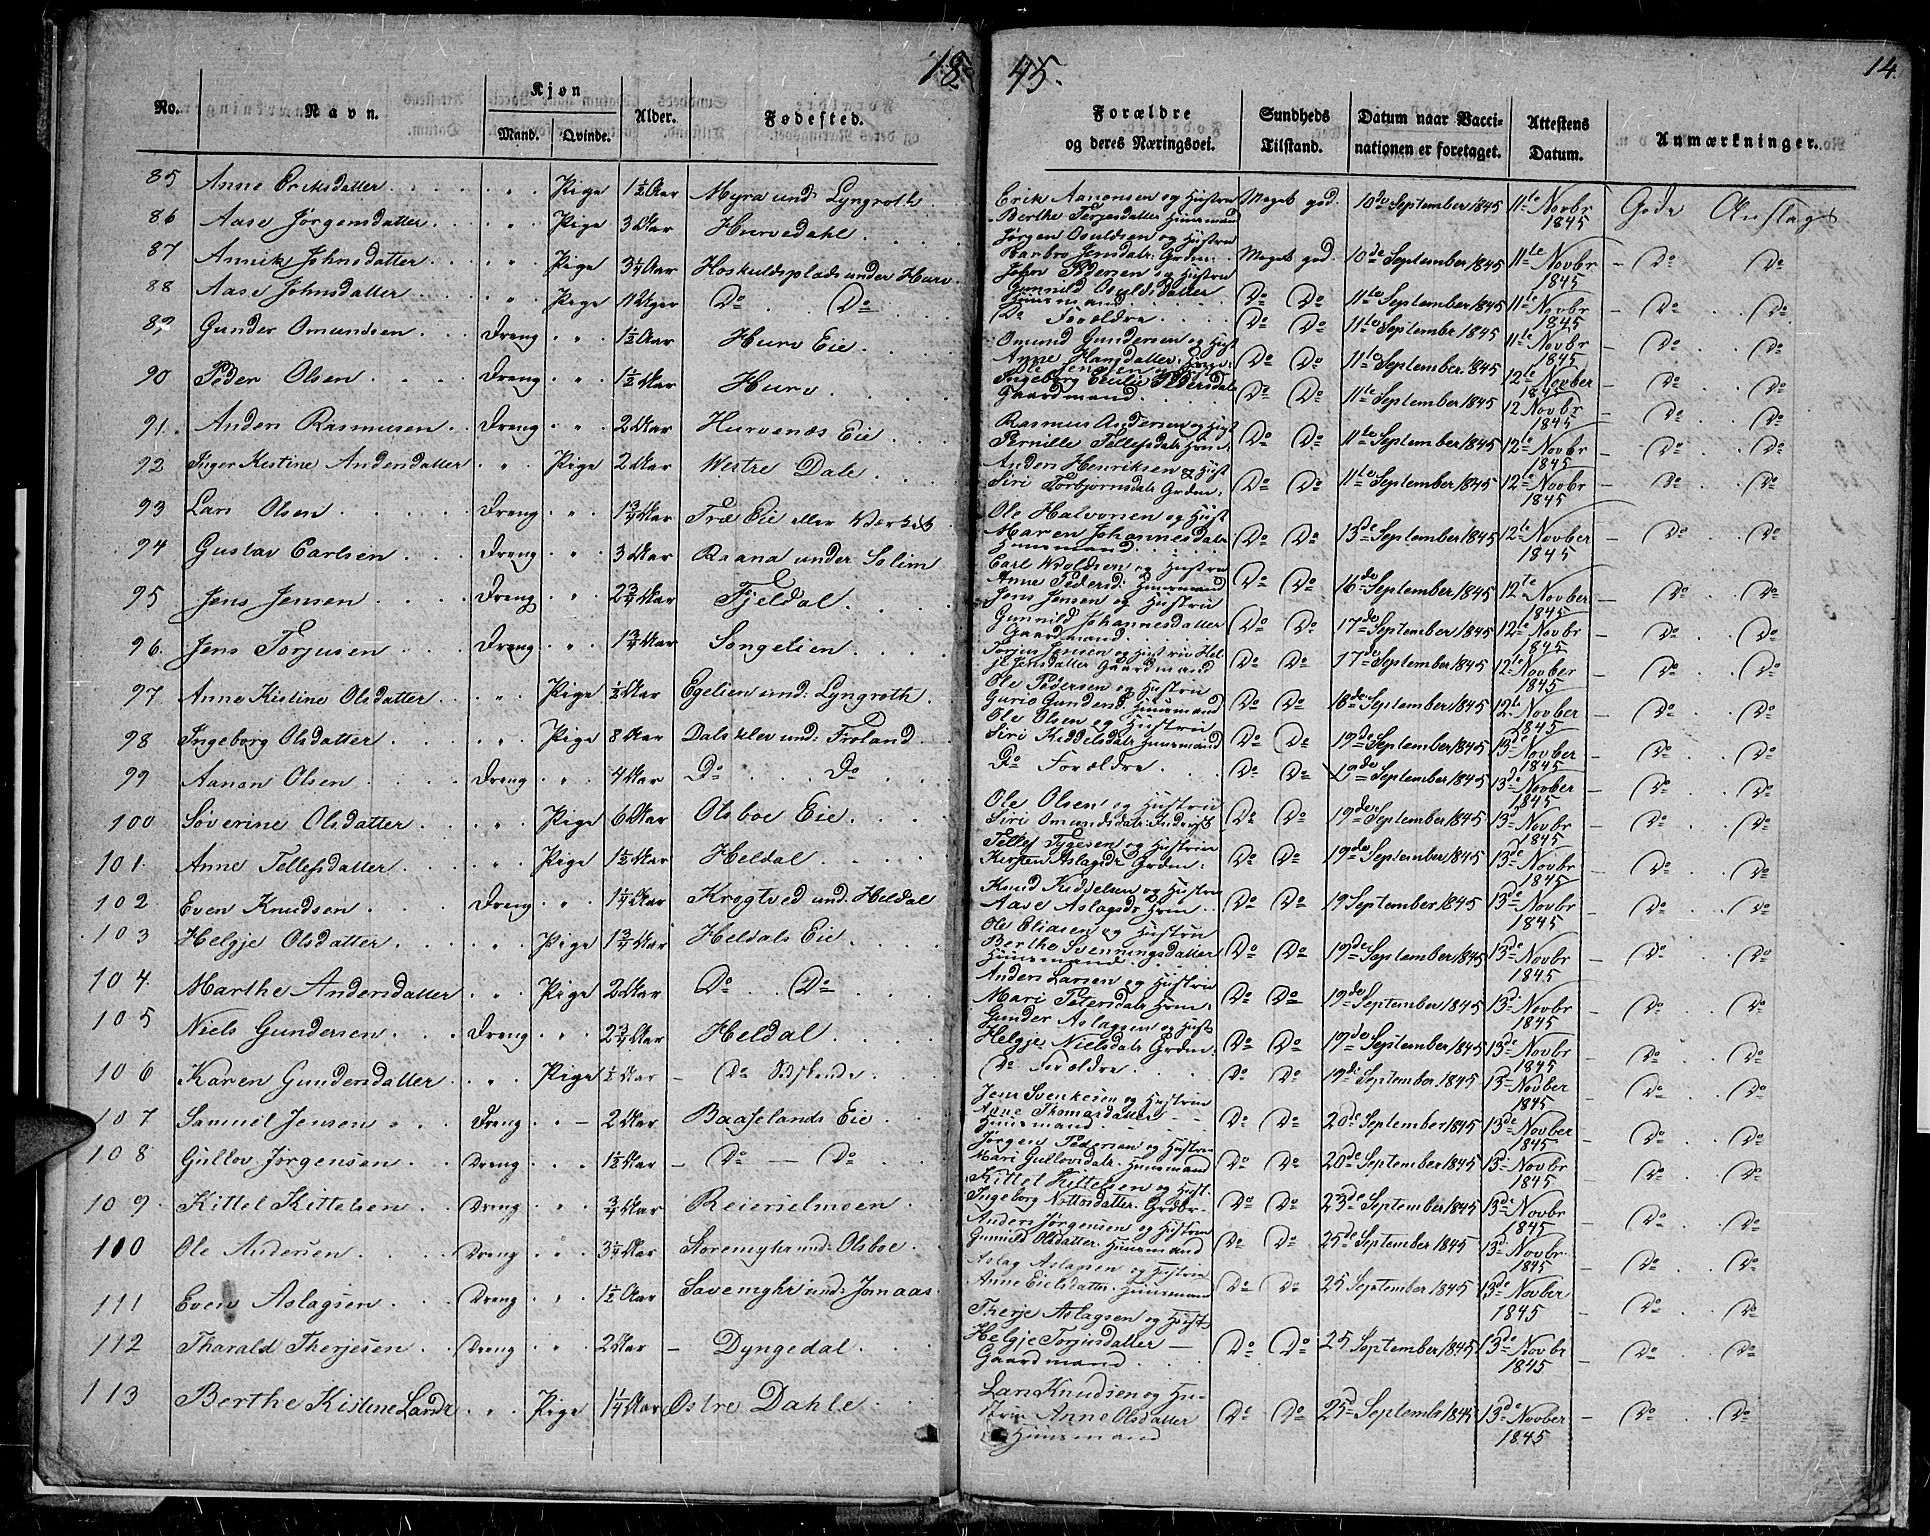 18 45.
14
No. Navn. Kjøn Alder. Fødested.
Mand. Qvinde.
Forældre og deres Næringsvei. Sundheds Tilstand. Datum naar Vaccinationen er foretaget. Attestens Datum. Anmærkninger.
85 Anne Eriksdatter " Pige 1½ Aar Myra und Lyngroth
86 Aase Jørgensdatter " Pige 3 Aar Hurvedahl
87 Annik Johnsdatter " Pige 3¼ Aar Hoskuldsplads under Hurv
88 Aase Johnsdatter " Pige 11 Uger Do Do
89 Gunder Omundsen Dreng " 1½ Aar Hurv Eie
90 Peder Olsen Dreng " 1½ Aar Hurv
91. Anders Rasmusen Dreng " 2 Aar Hurvenæs Eie
92 Inger Kistine Andersdatter " Pige 2 Aar Westre Dale
93 Lars Olsen Dreng " 1¾ Aar Træ Eie eller Værket
94 Gustav Carlsen Dreng " 3 Aar Raana under Solim
95 Jens Jensen Dreng " 2¾ Aar Fjeldal
96. Jens Torjusen Dreng " 1¾ Aar Songelien
97 Anne Kistine Olsdatter " Pige ½ Aar Egelien und: Lyngroth
98 Ingeborg Olsdatter " Pige 8 Aar Dalsklev und: Froland
99 Aanon Olsen Dreng " 4 Aar Do Do
100 Søverine Olsdatter " Pige 6 Aar Olsboe Eie
101. Anne Tellefsdatter " Pige 1½ Aar Heldal
102 Even Knudsen Dreng " 1¼ Aar Krogtved und: Heldal
103 Helgje Olsdatter " Pige 1¾ Aar Heldals Eie
104. Marthe Andersdatter " Pige 2 Aar Do Do
105 Niels Gundersen Dreng " 2¾ Aar Heldal
106 Karen Gundersdatter " Pige ½ Aar Do
107 Samuel Jensen Dreng " 2 Aar Baaselands Eie
108 Gullov Jørgensen Dreng " 1½ Aar Do Do
109 Kittel Kittelsen Dreng " ¾ Aar Reierselmoen
110 Ole Andersen Dreng " 3¼ Aar Storemyhr und: Olsboe
111 Even Aslagsen Dreng " 1½ Aar Savemyhr und: Jomaas
112 Tharald Therjesen Dreng " 2 Aar Dyngedal
113 Berthe Kistine Larsdr " Pige 1¼ Aar Østre Dahle
Erik Aamonsen og Hustru Meget god. 10de September 1845 11te Novbr 1845 Gode Anslag
Berthe Terjesdatter Huusmand
Jørgen Osuldsen og Hustru
Barbro Jensdatr: Grdm: Meget god. 10de September 1845 11te Novbr 1845 Do Do
John Pedersen og Hustru
Gunnild Osuldsdatter
Huusmand Do Do 11te September 1845 11te Novbr 1845 Do Do
Do Forældre Do Do 11te September 1845 11te Novbr 1845 Do Do
Omund Gundersen og Hust
Anne Hansdatter Do Do 11te September 1845 12te Novber 1845 Do Do
Ole Jensen og Hustru
Ingeborg Cecilie Pedersdatr
Gaardmand Do Do 11te September 1845 12 Novbr 1845 Do Do
Rasmus Andersen og Hust
Pernille Tellefsdatr Do Do 11te September 1845 12te Novbr 1845 Do Do
Anders Henriksen og Hust
Siri Torbjørnsdatr Grdm: Do Do 11te September 1845 12te Novbr 1845 Do Do
Ole Halvorsen og Hust
Maren Johannesdatr
Huusmand Do Do 13de September 1845 12te Novber 1845 Do Do
Carl Woldsen og Hustru
Anne Pedersd: Huusmand Do Do 16de September 1845 12te Novber 1845 Do Do
Jens Jensen og Hustru
Gunnild Johannesdatter
Gaardmand Do Do 17de September 1845 12te Novbr 1845 Do Do
Torjus Jensen og Hustru Hel-
je Jensdatter Gaardmand Do Do 17de September 1845 12te Novber 1845 Do Do
Ole Pedersen og Hustru
Guro Gundersd. Huusmand Do Do 18de September 1845 12te Novber 1845 Do Do
Ole Olsen og Hustru
Siri Kiddelsdatr Huusmand Do Do 19de September 1845 13de Novber 1845 Do Do
Do Forældre Do Do 19de September 1845 13de Novber 1845 Do Do
Ole Olsen og Hustru
Siri Omundsdatr Do Do 19de September 1845 13de Novbr 1845 Do Do
Tellef Tygesen og Hustru
Kirsten Aslagsdr Grdm: Do Do 19de September 1845 13de Novbr 1845 Do Do
Knud Kiddelsen og Hustru
Aase Aslagsdr Hsm Do Do 19 September 1845 13de Novbr 1845 Do Do
Ole Eliasen og Hustru
Berthe Svenningsdatter
Huusmand Do Do 19de September 1845 13de Novbr 1845 Do Do
Anders Larsen og Hustru
Mari Petersdatr Hsm: Do Do 19de September 1845 13de Novbr 1845 Do Do
Gunder Aslagsen og Hust
Helgje Nielsdatr Grdm: Do Do 19de September 1845 13de Novbr 1845 Do Do
Do Forældre Do Do 19de September 1845 13de Novber 1845 Do Do
Jens Svenkesen og Hustru
Anne Thomasdatter
Huusmand Do Do 20de September 1845 13de Novber 1845 Do Do
Jørgen Pedersen og Hustru
Mari Gullovsdatr. Huusmand Do Do 20de September 1845 13de Novbr 1845 Do Do
Kittel Kittelsen og Hust.
Ingeborg Do Do 23de September 1845 13de Novbr 1845 Do Do
Anders Jørgensen og Hustru
Gunnild Olsdatter. Huusmand Do Do 25de September 1845 13de Novbr 1845 Do Do
Aslag Aslagsen og Hustru
Anne Eielsdatter Huusmand Do Do 25 September 1845 13de Novber 1845 Do Do
Therje Aslagsen og Hust
Helgje Torjusdatter
Gaardmand Do Do 25 September 1845 13de Novbr 1845 Do Do
Lars Knudsen og Hu-
stru Anne Olsdatter Do Do 25d September 1845 13de Novber 1845 Do Do
Huusmand